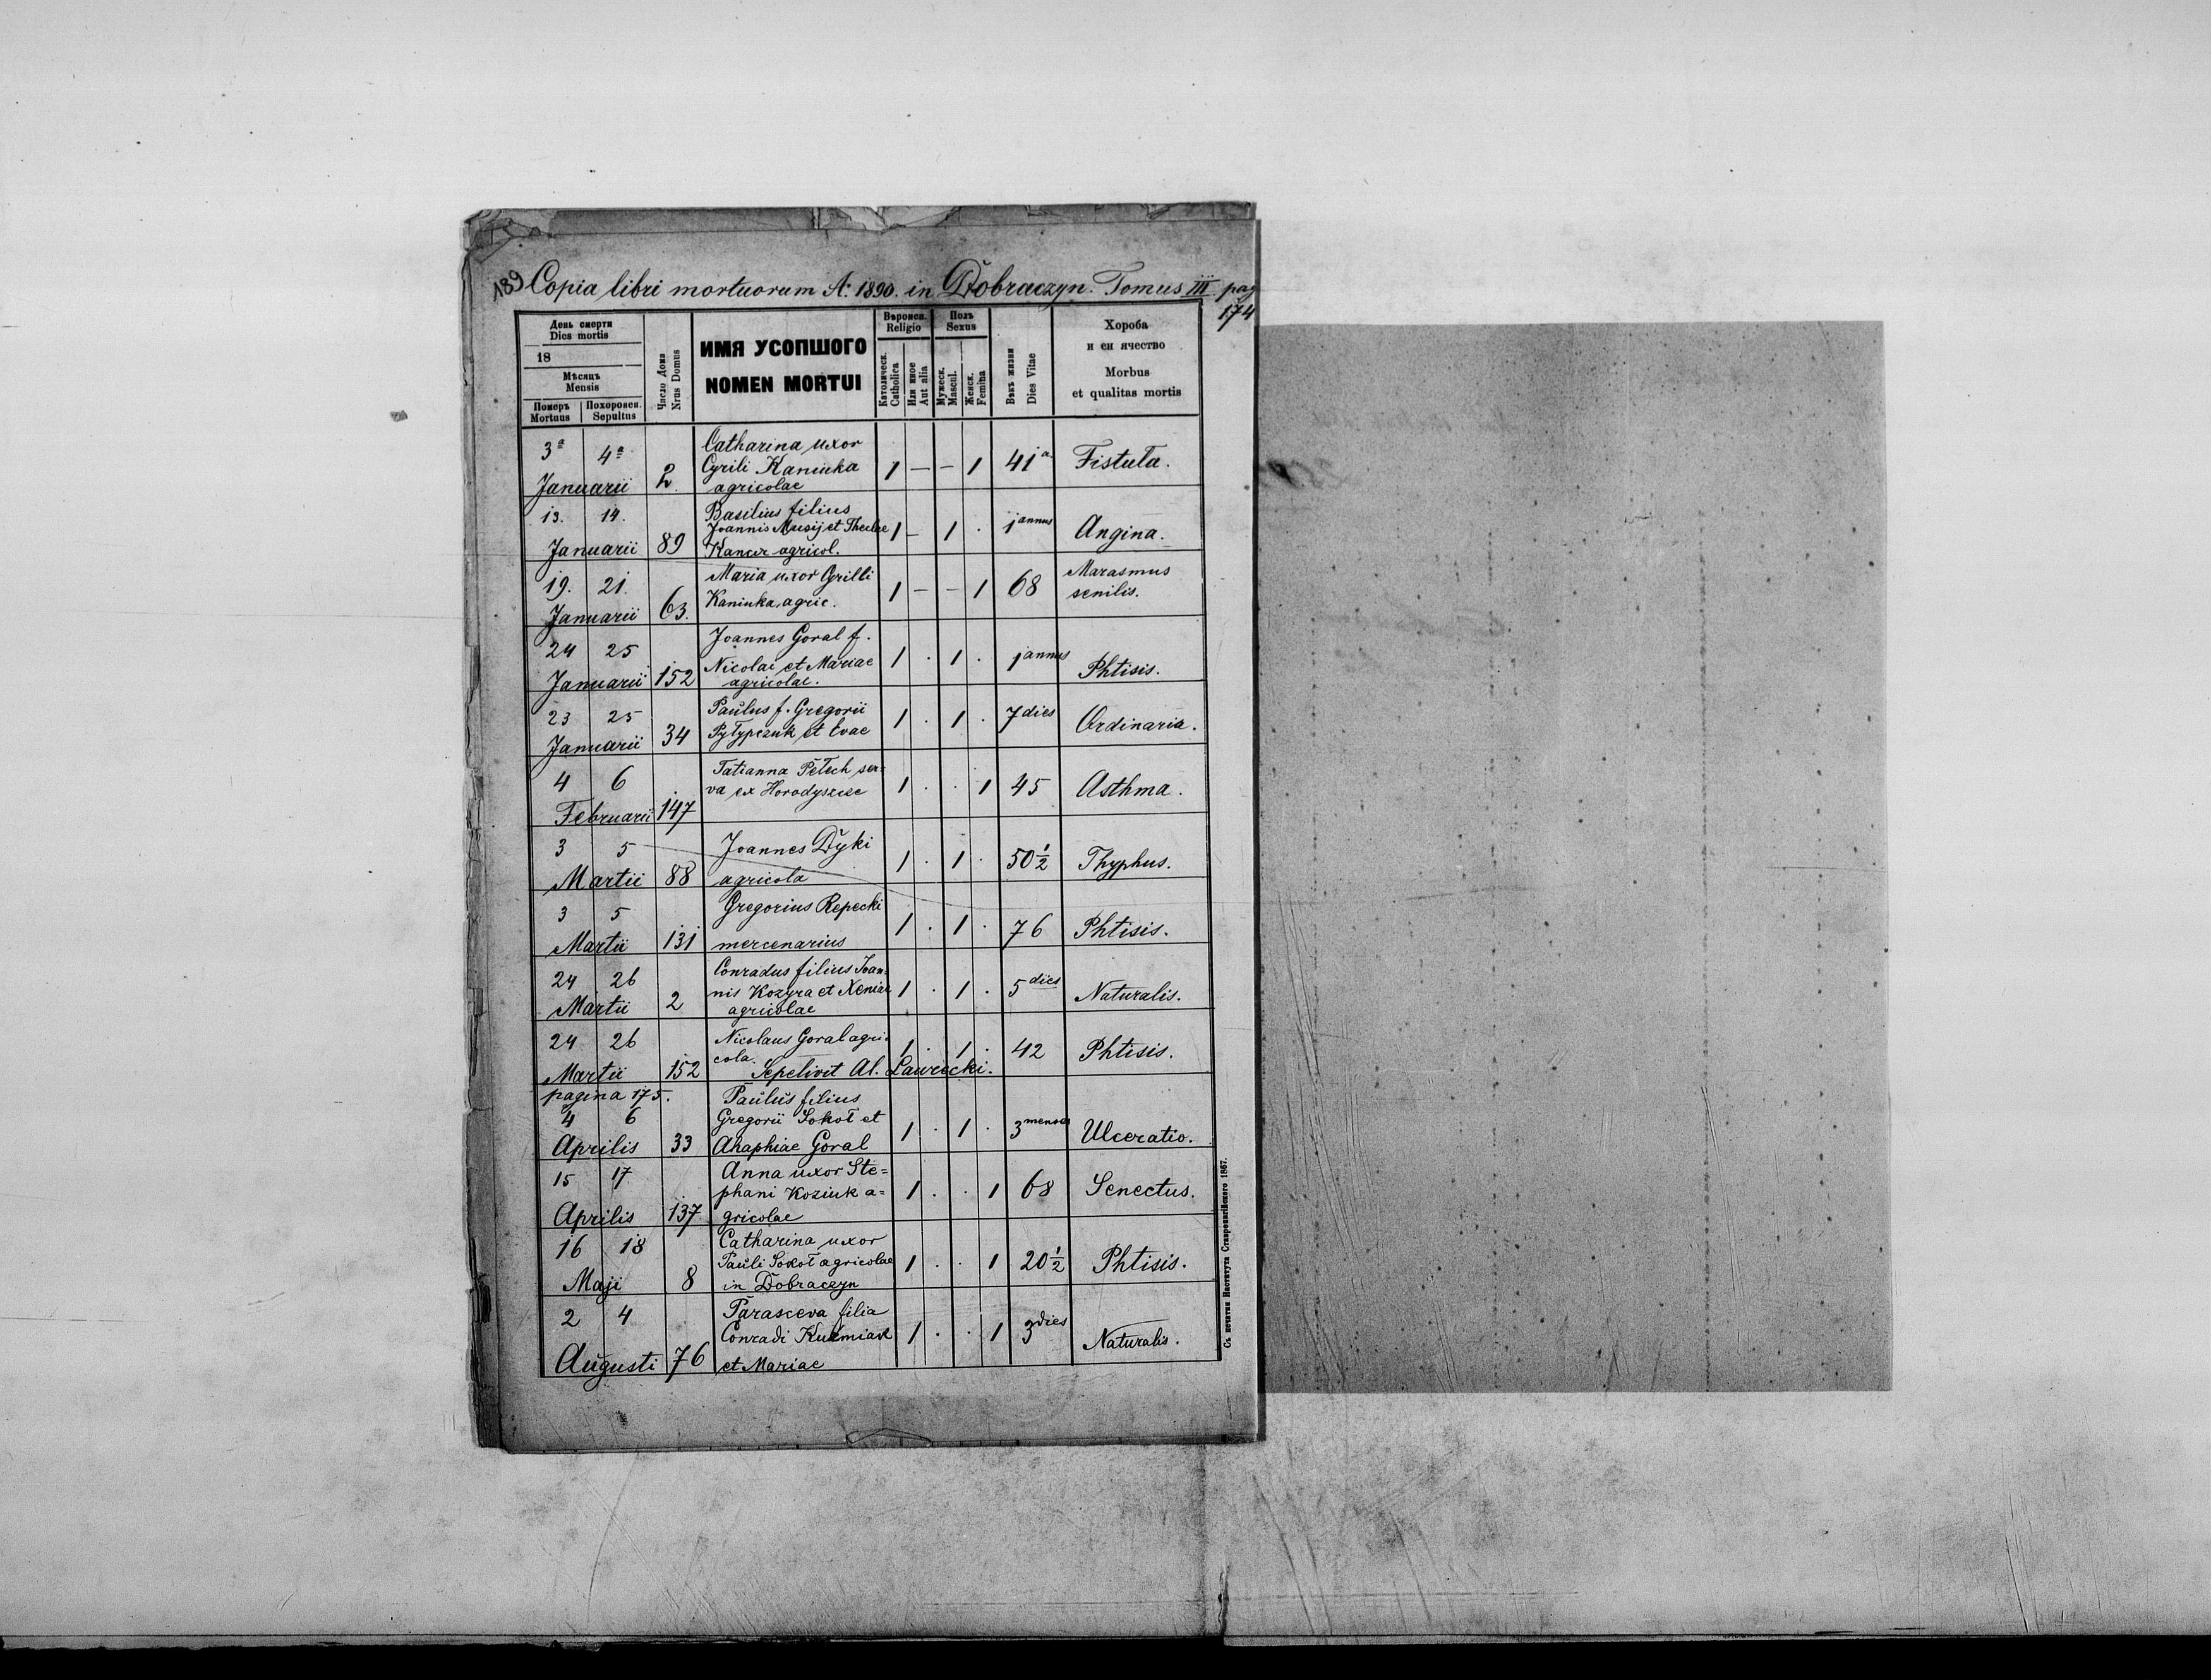 189 Copia libri mortuorum A: 1890. in Dobraczyn. Tomus III. pag
174
День смерти
Dies mortis
18
Мѣсяць
Mensis
Померъ Похоронен.
Mortuus Sepultus
Число Дома
Nrus Domus
ИМЯ УСОПШОГО
NOMEN MORTUI
Вѣроисп.
Religio
Католическ.
Catholica
Или иное
Aut alia
Полъ
Sexus
Мужеск.
Mascul.
Женск.
Femina
Вѣкъ жизни
Dies Vitae
Хороба
и еи ячество
Morbus
et qualitas mortis
3ª 4ª Catharina uxor
Cyrili Kaniuka 1 — — 1 41 a. Fistuła.
Januarii 2. agricolae
13. 14. Basilius filius
Joannis Musij et Theclae 1 — 1 . 1 annus Angina.
Januarii 89 agricol.
19. 21. Maria uxor Cyrilli Marasmus
Kaniuka, agric. 1 — — 1 68 senilis.
Januarii 63.
24 25 Joannes Goral f.
Nicolai et Mariae 1 . 1 . 1 annus Phtisis.
Januarii 152 agricolae.
23 25 Paulus f. Gregorii
Januarii 34 Pyłypczuk et Evae 1 . 1 . 7 dies Ordinaria.
4 6 Tatianna Pełech ser=
va ex Horodyszcze 1 . . 1 45 Asthma.
Februarii 147
3 5 Joannes Dyki
Martii 88 agricola 1 . 1 . 50 1/2 Thyphus.
3 5 Gregorius Repecki
Martii 131 mercenarius 1 . 1 . 76 Phtisis.
24 26 Conradus filius Joan=
nis Kozyra et Xeniae 1 . 1 . 5 dies Naturalis.
Martii 2 agricolae
24 26 Nicolaus Goral agri=
cola. 1 . 1 . 42 Phtisis.
Martii 152 Sepelivit Al. Lawrecki.
pagina 175. Paulus filius
4 6 Gregorii Sokoł et 1 . 1 . 3 menses Ulceratio.
Aprilis 33 Ahaphiae Goral
15 17 Anna uxor Ste=
phani Koziuk a= 1 . . 1 68 Senectus.
Aprilis 137 gricolae
16 18 Catharina uxor
Pauli Sokoł agricolae 1 . . 1 20 1/2 Phtisis.
Maji 8 in Dobraczyn
2 4 Parasceva filia
Conradi Kuźmiak 1 . . 1 3 dies Naturalis.
Augusti 76 et Mariae
Съ печатни Института Ставропигійского 1867.